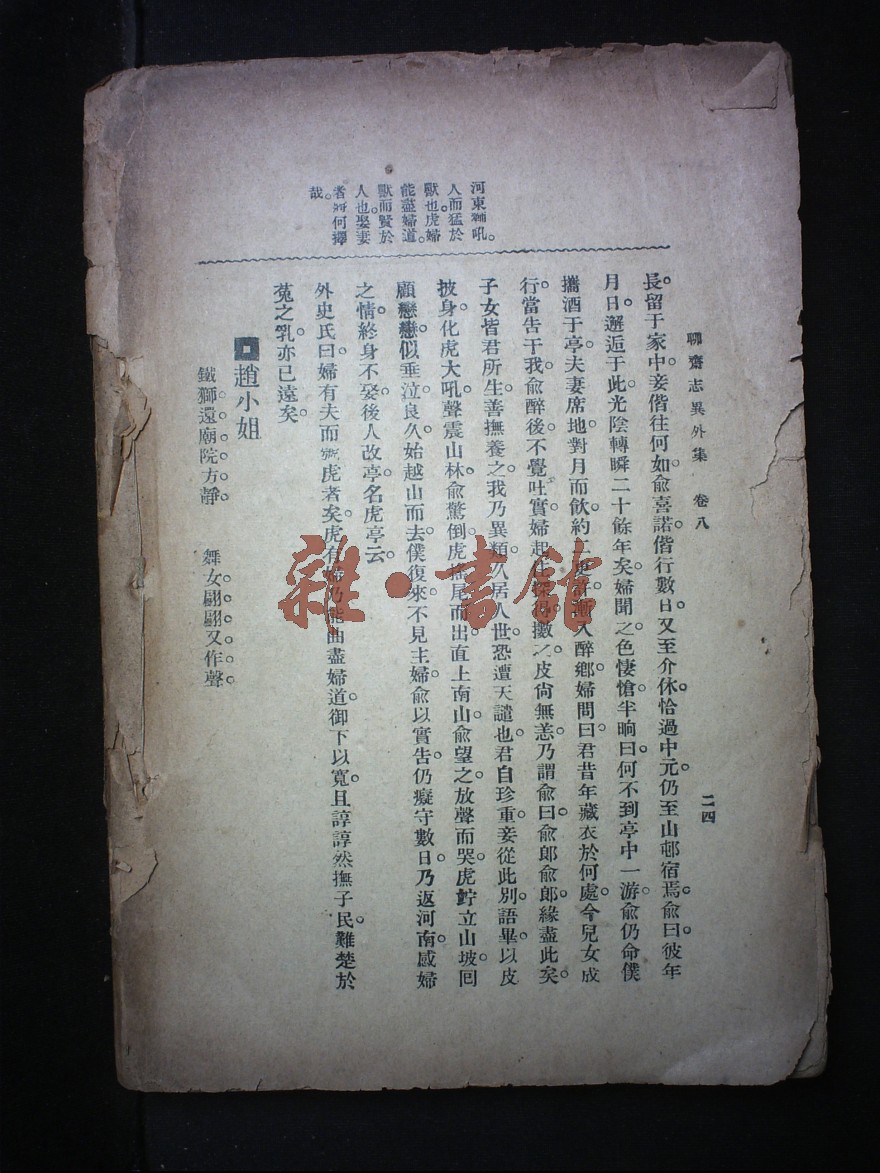 聊齋志異外集　卷八
二四
河東獅吼。
人而猛於
獸也。虎婦
能盡婦道。
獸而賢於
人也。娶妻
者何擇
哉。
長留于家中。妾偕往何如。俞喜諾。偕行數日。又至介休。恰過中元。仍至山邨宿焉。俞曰。彼年
月日。邂逅于此。光陰轉瞬二十餘年矣。婦聞之。色悽愴。半晌曰。何不到亭中一游。俞仍命僕
攜酒于亭。夫妻席地。對月而飲。約二更許。漸入醉鄉。婦問曰。君昔年藏衣於何處。今兒女成
行。當告于我。俞醉後。不覺吐實。婦起往探得獸之皮。尚無恙。乃謂俞曰。俞郎俞郎。緣盡此矣。
子女皆君所生。善撫養之。我乃異類。久居人世。恐遭天譴也。君自珍重。妾從此別。語畢。以皮
披身。化虎大吼。聲震山林。俞驚倒。虎搖尾而出。直上南山。俞望之。放聲而哭。虎竚立山坡。囘
顧戀戀。似垂泣。良久始越山而去。僕復來。不見主婦。俞以實告。仍癡守數日。乃返河南。感婦
之情。終身不娶。後人改亭名虎亭云。
外史氏曰。婦有夫而虎者矣。虎有婦乃能曲盡婦道。御下以寬。且諄諄然撫子民。難楚於
菟之乳。亦已遠矣。
趙小姐
鐵獅還廟院方靜。　舞女翩翩又作聲。
雜·書館